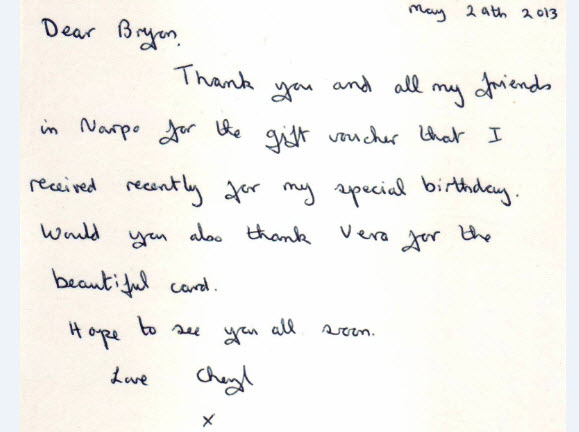 May 29th 2013
Dear Bryan,
Thank you and all my friends
in Narpo for the gift voucher that I
received recently for my special birthday.
Would you also thank Vera for the
beautiful card.
Hope to see you all soon.
Love Cheryl
x